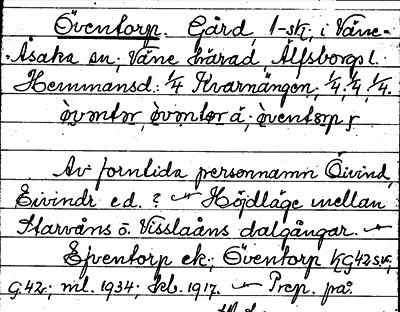 Öventorp. Gård, 1-skz, i Väne-
Åsaka sn, Väne härad, Älfsborgs l.
Hemmansd.: 1/4 Kvarnängen; 1/4, 1/4, 1/4.
Av forntida personnamn Öivind,
Eivindr e d. ? Höjdläge mellan
Harvåns o. Visslaåns dalgångar.
Efventorp ek.; Öventorp
G.42; ml. 1934; jkb. 1917. Prep. på.